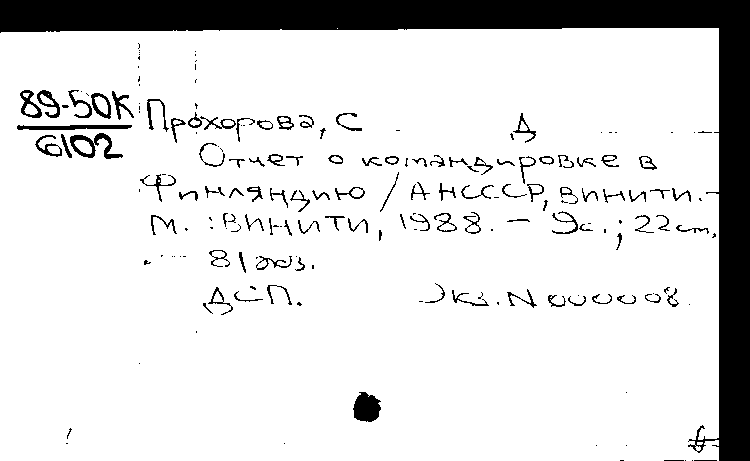 89-50К
6102
Прохорова, С Д
Отчет о командировке в
Финляндию / АНСССР, ВИНИТИ. –
М. : ВИНИТИ, 1988. – 9с. ; 22 cm,
81 экз.
ДСП. Экз. N 000008